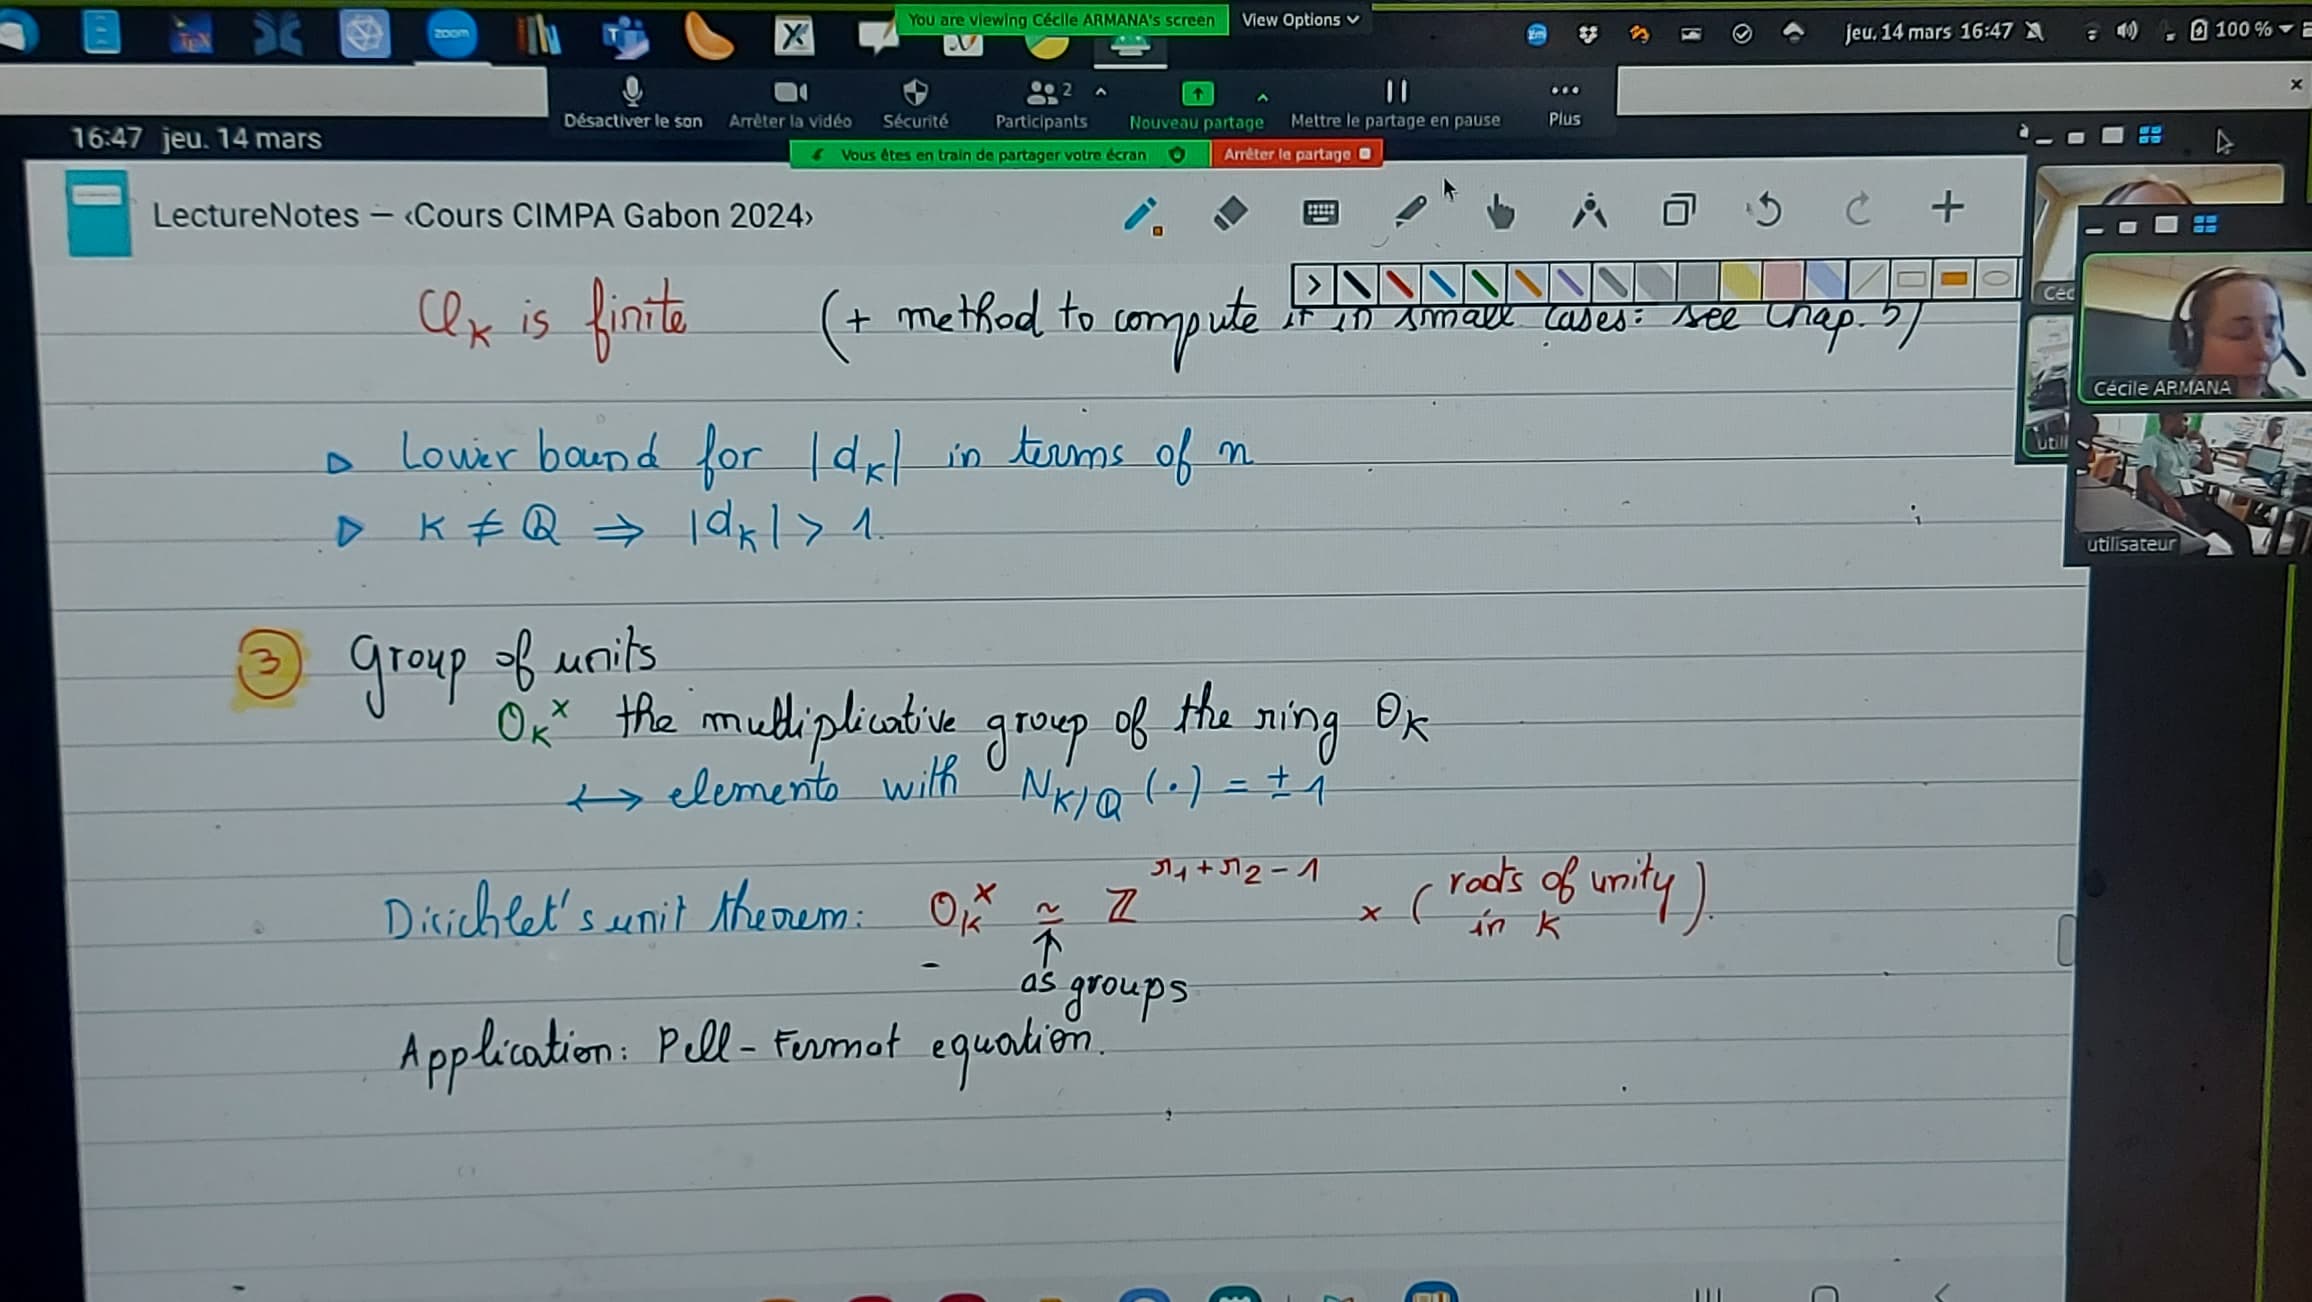 You are viewing Cécile ARMANA's screen View Options
zoom
jeu. 14 mars 16:47 100 %
Désactiver le son Arrêter la vidéo Sécurité Participants 2 Nouveau partage Mettre le partage en pause Plus
16:47 jeu. 14 mars
Vous êtes en train de partager votre écran Arrêter le partage
LectureNotes – ‹Cours CIMPA Gabon 2024›
Céc
Cl_K is finite (+ method to compute it in small cases: see Chap. 5)
Cécile ARMANA
util
▷ Lower bound for |d_K| in terms of n
▷ K ≠ ℚ ⇒ |d_K| > 1.
utilisateur
③ Group of units
O_K^× the multiplicative group of the ring O_K
↔ elements with N_{K/ℚ}(·) = ±1
Dirichlet's unit theorem: O_K^× ≃ ℤ^{r_1+r_2-1} × (roots of unity in K).
↑
as groups
Application: Pell-Fermat equation.